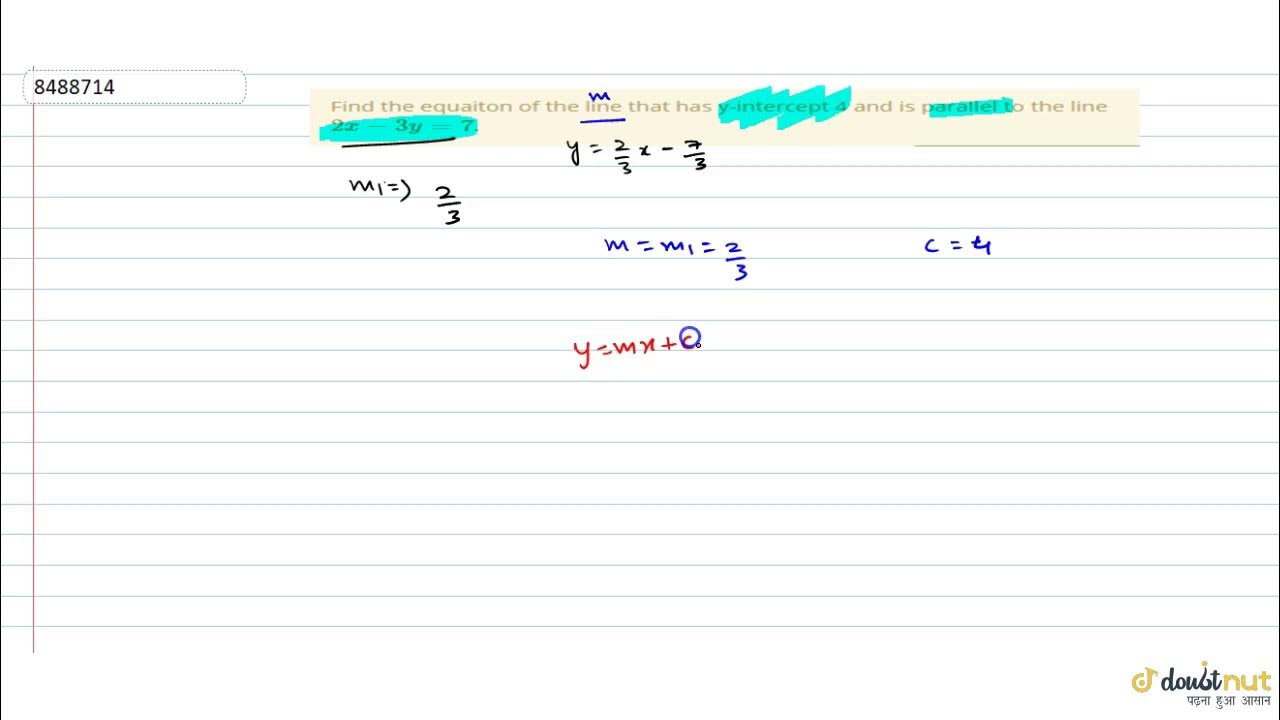 8488714
m
Find the equaiton of the line that has y-intercept 4 and is parallel to the line
2x − 3y = 7.
y = 2/3 x − 7/3
m₁ ⇒ 2/3
m = m₁ = 2/3
c = 4
y = mx + c
doubtnut
पढ़ना हुआ आसान